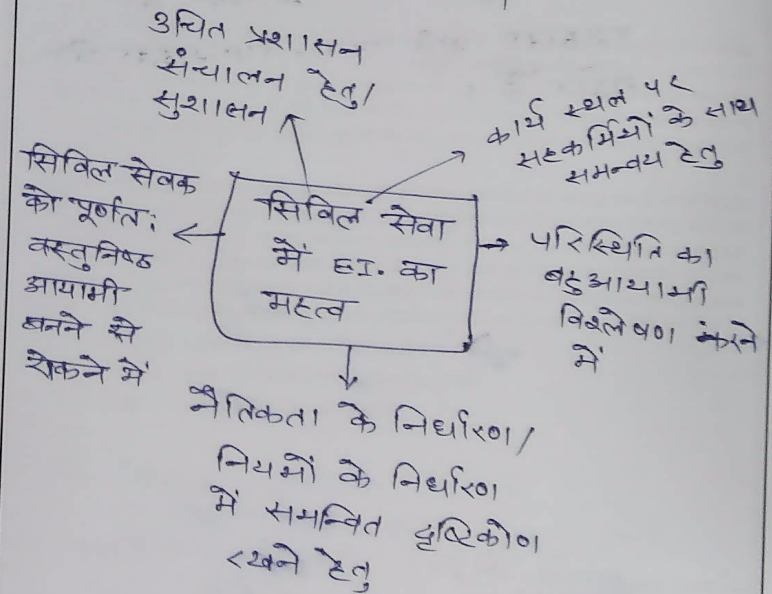 उचित प्रशासन
संचालन हेतु/
सुशासन
कार्य स्थल पर
सहकर्मियों के साथ
समन्वय हेतु
सिविल सेवक
को पूर्णत:
वस्तुनिष्ठ
आयामी
बनने से
रोकने में
सिविल सेवा
में EI. का
महत्व
परिस्थिति का
बहुआयामी
विश्लेषण करने
में
नैतिकता के निर्धारण/
नियमों के निर्धारण
में समन्वित दृष्टिकोण
रखने हेतु